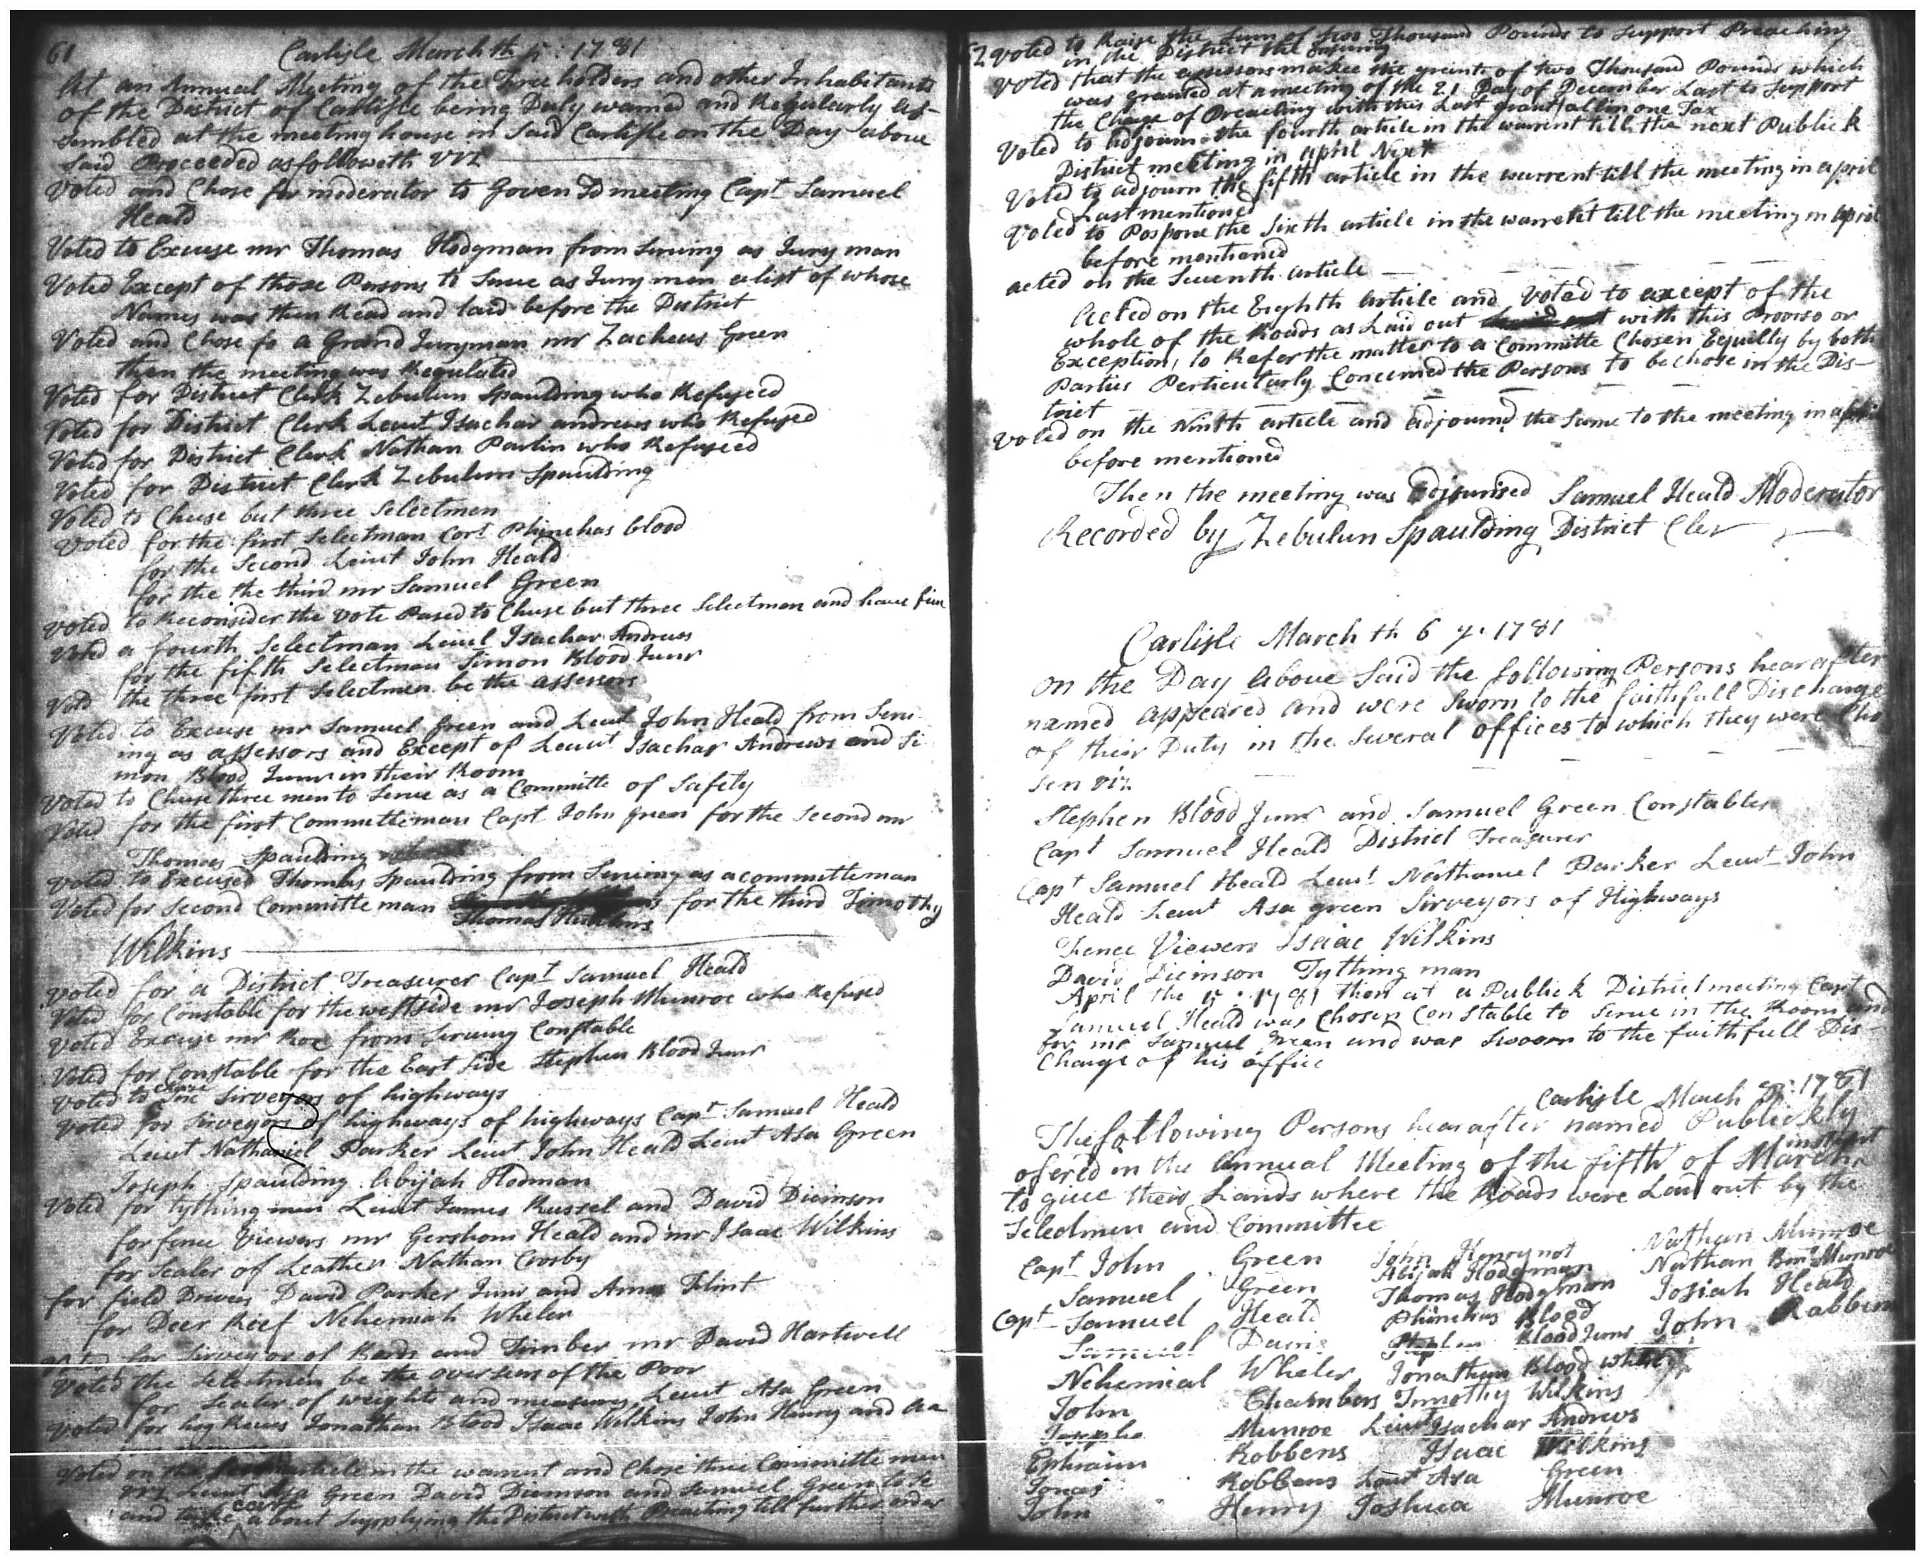 61 Carlisle March th 5 : 1781
At an Annual Meeting of the Free holders and other Inhabitants
of the District of Carlisle being Duly warned and Regularly As-
sembled at the meeting house in Said Carlisle on the Day above
Said Proceeded as followeth VIZ
Voted and Chose for moderator to Goven Sd meeting Capt Samuel
Heald
Voted to Excuse mr Thomas Hodgman from Serving as Jury man
Voted Except of those Persons to Serve as Jury men a list of whose
Names was then Read and laid before the District
Voted and Chose fo a Grand Juryman mr Zacheus Green
then the meeting was Regulated
Voted for District Clerk Zebulun Spaulding who Refuseed
Voted for District Clerk Leiut Isachar andrews who Refused
Voted for District Clerk Nathan Parlin who Refuseed
Voted for District Clerk Zebulun Spaulding
Voted to Chuse but three Selectmen
Voted for the first Selectman Corl Phinehas blood
for the Second Leiut John Heald
for the the third mr Samuel Green
Voted to Reconsider the Vote Pased to Chuse but three Selectmen and have five
Voted a fourth Selectman Leiut Isachar Andrews
for the fifth Selectman Simon Blood Junr
Votd the three first Selectmen be the assessors
Voted to Excuse mr Samuel Green and Leiut John Heald from Serv
ing as assessors and Except of Leiut Isachar Andrews and Si
mon Blood Junr in their Room
Voted to Chuse three men to Serve as a Committe of Safety
Voted for the first Committeeman Capt John green for the Second mr
Thomas Spaulding
Voted to Excused Thomas Spaulding from Serving as a committeman
Voted for Second Committe man for the third Timothy
Thomas Hutchins
Wilkins
Voted for a District Treasurer Capt Samuel Heald
Voted for Constable for the west side mr Joseph Munroe who Refused
Voted Excuse mr Roe from Serving Constable
Voted for Constable for the East Side Stephen Blood Junr
Voted to Chuse Sirveyors of highways
Voted for Sirveyors of highways of highways Capt Samuel Heald
Leiut Nathaniel Parker Leiut John Heald Leiut Asa Green
Joseph Spaulding Abijah Hodman
Voted for tything men Leiut James Russel and David Dicinson
for fence Viewers mr Gershom Heald and mr Isaac Wilkins
for Sealer of Leather Nathan Crosby
for field Drivers David Parker Junr and Amos Flint
for Deer Reef Nehemiah Wheler
Voted for Sirveyor of Bords and Timber mr David Hartwell
Voted the Selectmen be the overseers of the Poor
for Sealer of weights and measures Leiut Asa Green
Voted for hog Reves Jonathan Blood Isaac Wilkins John Henry and
Voted on the article in the warrent and Chose three Committe men
VIZ Leiut Asa Green David Dicinson and Samuel Green to Se
and take care about Supplying the District with Preaching till further order
62 Voted to Raise the Sum of two Thousand Pounds to Support Preaching
in the District the Insuing
Voted that the assessors make the grants of two Thousand Pounds which
was granted at a meeting of the 21 Day of December Last to Support
the Charge of Preaching with this Last grant all in one Tax
Voted to adjourn the fourth article in the warrent till the next Publick
District meeting in april Next
Voted to adjourn the fifth article in the warrent till the meeting in april
Last mentioned
Voted to Pospone the Sixth article in the warrent till the meeting in april
before mentioned
acted on the Seventh article
Acted on the Eighth article and Voted to axcept of the
whole of the Roads as Laid out with this Proviso or
Exception, to Refer the matter to a Committe Chosen Equilly by both
Parties Perticurlarly Concerned the Persons to be chose in the Dis-
trict
Voted on the Ninth article and adjournd the Same to the meeting in april
before mentioned
Then the meeting was adjourned Samuel Heald Moderator
Recorded by Zebulun Spaulding District Cler
Carlisle March th 6 y. 1781
on the Day above Said the following Persons hearafter
named appeared and were Sworn to the faithfull Discharge
of their Duty in the Several offices to which they were Cho
sen viz
Stephen Blood Junr and Samuel Green Constables
Capt Samuel Heald District Treasurer
Capt Samuel Heald Leiut Nathaniel Parker Leiut John
Heald Leiut Asa green Sirveyors of Highways
Fence Viewers Isaac Wilkins
David Dicinson Tything man
April the 17 81 then at a Publick District meeting Capt
Samuel Heald was Chosen Constable to Serve in the Room and
for mr Samuel Green and was Sworn to the faithfull Dis-
Charge of his office
Carlisle March 1781
The following Persons hearafter named Publickly
ofered in the Annual Meeting of the fifth of March instant
to give their Lands where the Roads were Laid out by the
Selectmen and Committee
Capt John Green John Henry not Nathan Munroe
Samuel Green Abijah Hodgman Nathan Munroe
Capt Samuel Heald Thomas Hodgman Josiah Heald
Samuel Phinehas Blood John Rabbens
Nehemiah Wheler Stephen Blood Junr
John Chambers Jonathan Blood
Joseph Munroe Timothy Wilkins
Ephraim Robbens Leiut Isachar Andrews
Jonas Robbens Isaac Wilkins
John Henry Leiut Asa Green
Joshua Munroe